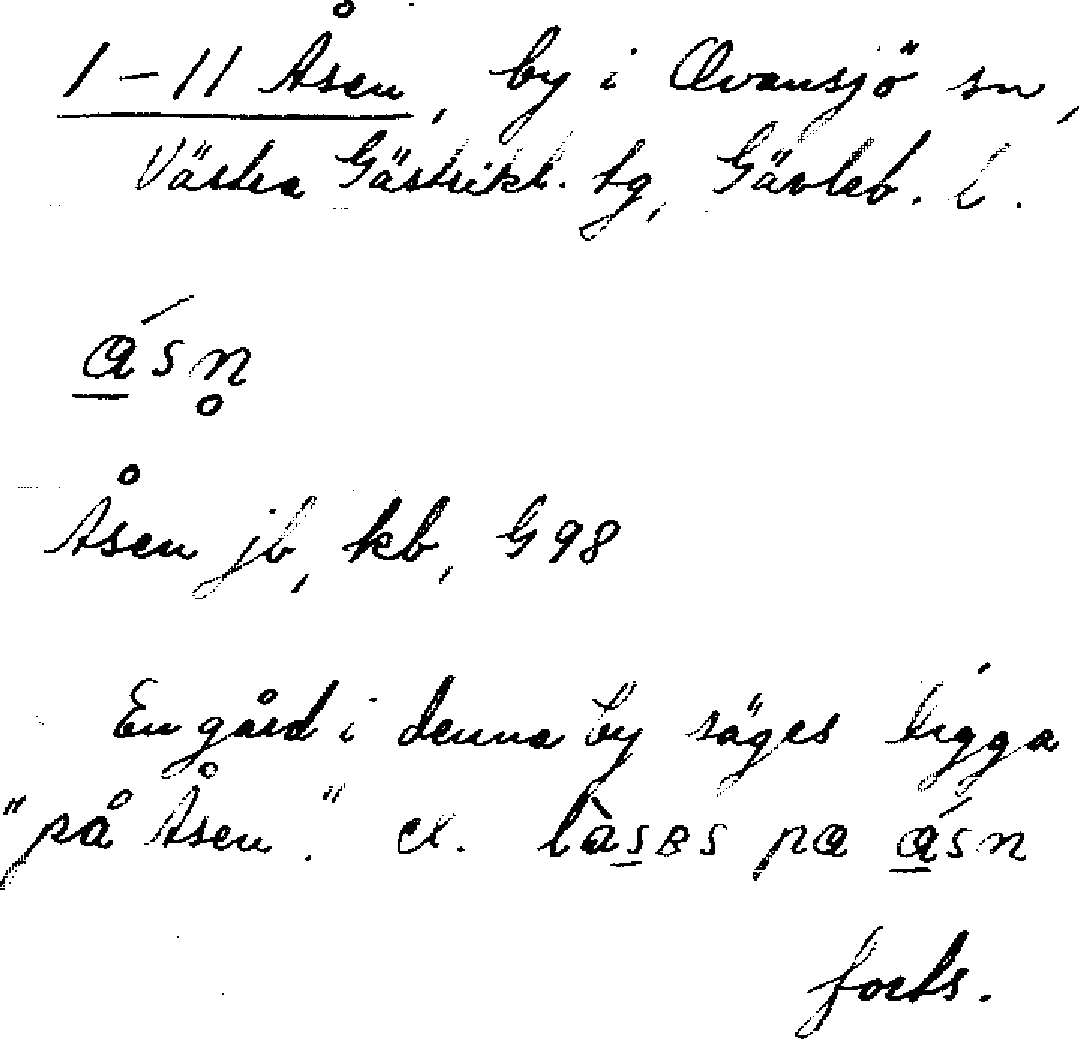 1–11 Åsen, by i Ovansjö sn,
Västra Gästrikl. tg, Gävleb. l.
ásn̥
Åsen jb, kb, G98
En gård i denna by säges ligga
"på Åsen." ex. làses pa ásn
forts.